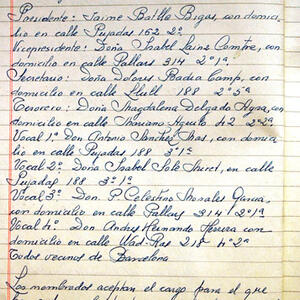 Presidente: Jaime Batlle Bigas, con domici-
lio en calle Pujadas 162 2ª
Vicepresidente: Doña Isabel Sainz Comtre, con
domicilio en calle Pallars 314 2º1ª
Secretario: Doña Dolores Badia Camp, con
domicilio en calle Llull 188 2º 5ª
Tesorero: Doña Magdalena Delgado con
domicilio en calle Mariano Aguiló 42 2º2ª
Vocal 1º Don Antonio Sanchez Mas, con domici
lio en calle Pujadas 188 3º1ª
Vocal 2º: Doña Isabel Solé en calle
Pujadas 188 3º 1ª
Vocal 3º Don P. Celestino Morales Garcia,
con domicilio en calle Pallars 314 1º 2ª
Vocal 4º Don Andres Hernando Herrera con
domicilio en calle Wad-Ras 218 4º2ª
Todos vecinos de Barcelona
Los nombrados aceptan el cargo para el que